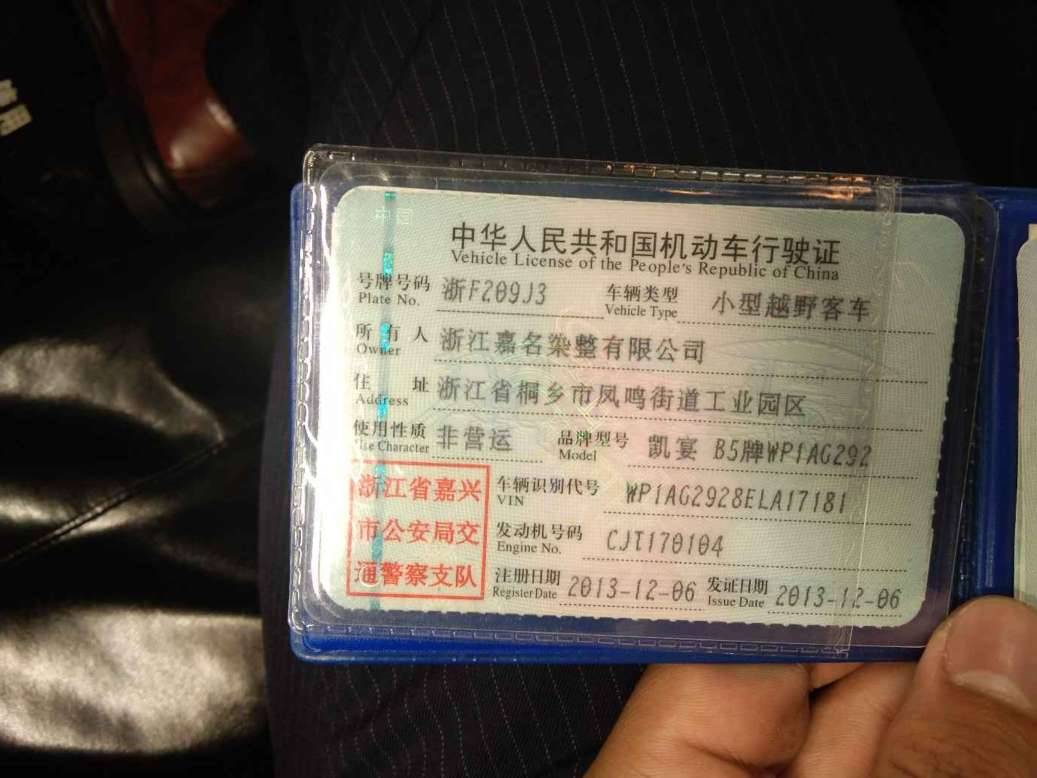 中国
中华人民共和国机动车行驶证
Vehicle License of the People's Republic of China
号牌号码 浙F209J3 车辆类型 小型越野客车
Plate No. Vehicle Type
所有人 浙江嘉名染整有限公司
Owner
住址 浙江省桐乡市凤鸣街道工业园区
Address
使用性质 非营运 品牌型号 凯宴 B5牌WP1AG292
Use Character Model
浙江省嘉兴
市公安局交
通警察支队
车辆识别代号 WP1AG2928ELA17181
VIN
发动机号码 CJT170104
Engine No.
注册日期 2013-12-06 发证日期 2013-12-06
Register Date Issue Date